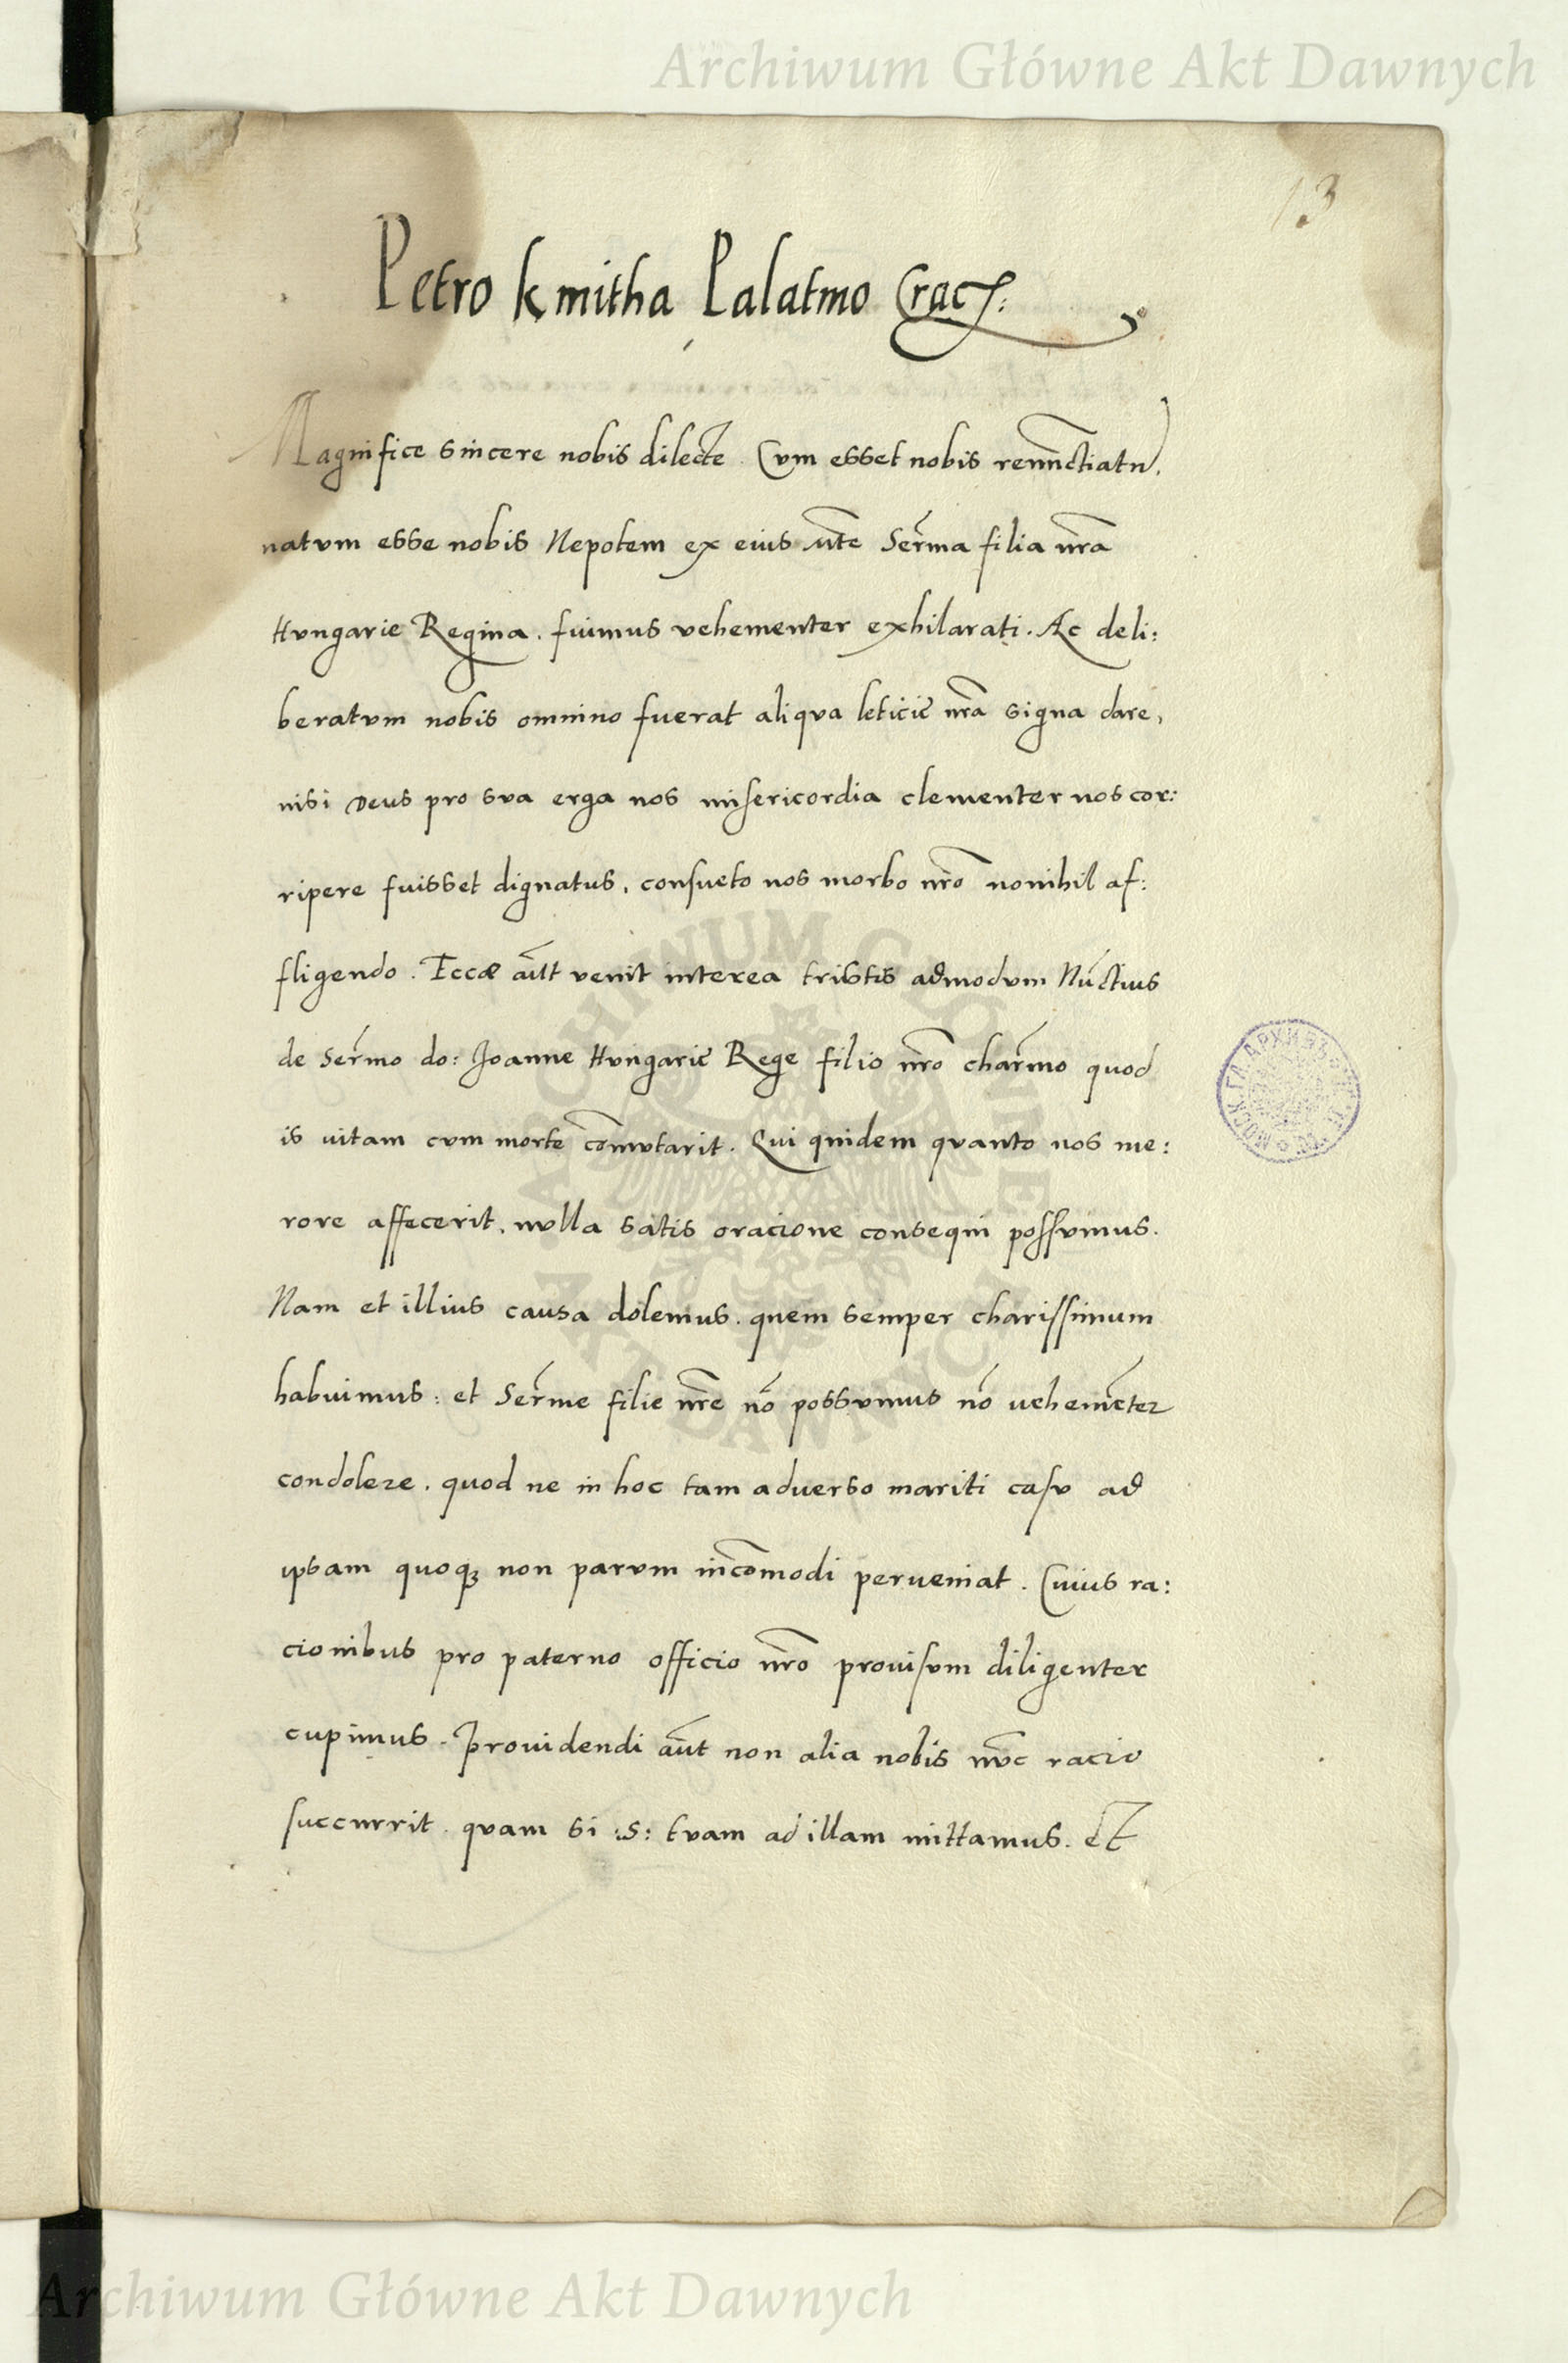 Archiwum Główne Akt Dawnych
13
Petro kmitha Palatino Crac:
Magnifice sincere nobis dilecte. Cvm esset nobis renunctiatu,
natvm esse nobis Nepotem ex eius Mte Serma filia nra
Hvngarie Regina. fuimus vehementer exhilarati. Ac deli:
beratvm nobis omnino fuerat aliqva leticie nra signa dare,
nisi Deus pro sva erga nos misericordia clementer nos cor:
ripere fuisset dignatus, consueto nos morbo nro nonihil af:
fligendo. Eccæ aut venit interea tristis admodvm Nuctius
de Sermo do: Joanne Hvngarie Rege filio nro charmo quod
is vitam cvm morte comvtarit. Qui quidem qvanto nos me:
rore affecerit. nvlla satis oracione consequi possvmus.
Nam et illius causa dolemus. quem semper charissimum
habuimus: et Serme filie nre no possvmus no vehemeter
condolere. quod ne in hoc tam aduerso mariti casv ad
ipsam quoq3 non parvm incomodi perueniat. Cuius ra:
cionibus pro paterno officio nro prouisvm diligenter
cupimus. Prouidendi aut non alia nobis nvc racio
succurrit. qvam si :S: tvam ad illam mittamus. et
ARCHIWUM GŁÓWNE
AKT DAWNYCH
Archiwum Główne Akt Dawnych